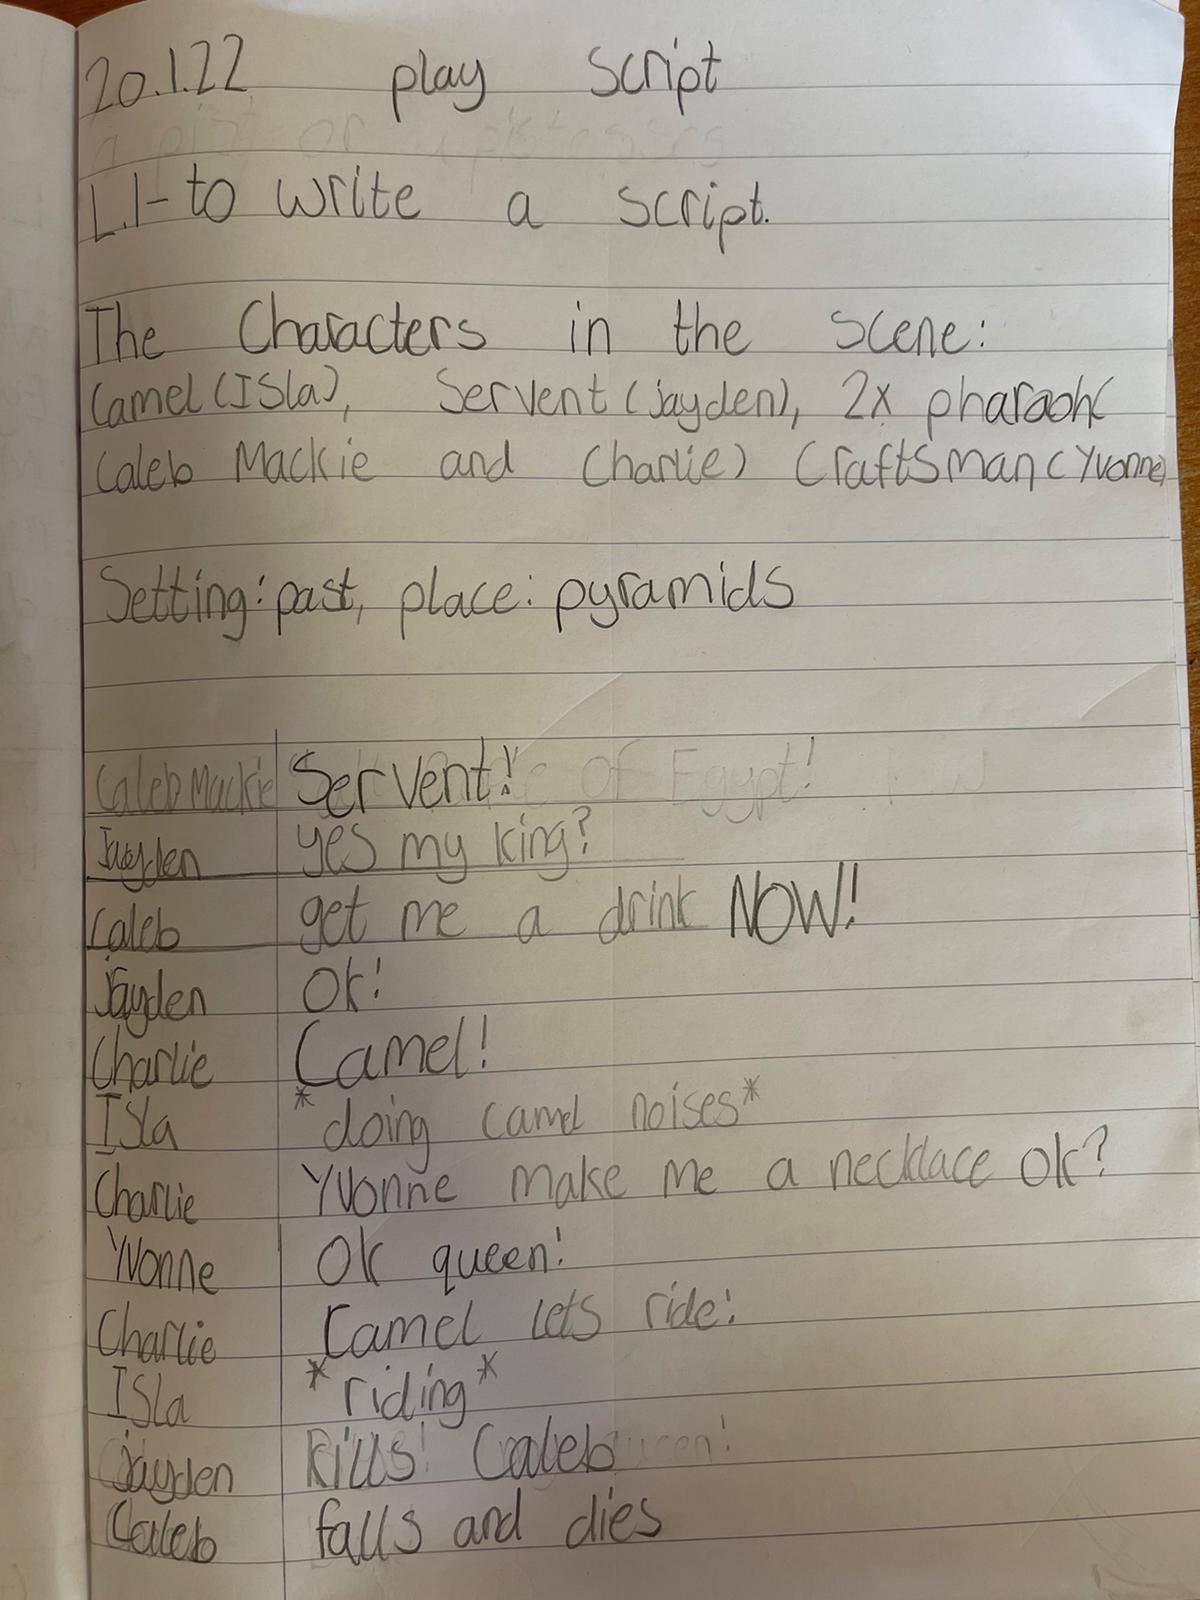 20.1.22 play script
L.I- to write a script.
The Characters in the scene:
Camel (Isla), Servent (jayden), 2x pharaoh(
Caleb Mackie and Charlie) Craftsman (Yvonne)
Setting: past, place: pyramids
Caleb Mackie Servent!
Jayden yes my king?
Caleb get me a drink NOW!
jayden Ok!
Charlie Camel!
Isla *doing camel noises*
Charlie Yvonne make me a necklace ok?
Yvonne Ok queen!
Charlie Camel lets ride!
Isla *riding*
jayden kills! Caleb
Caleb falls and dies